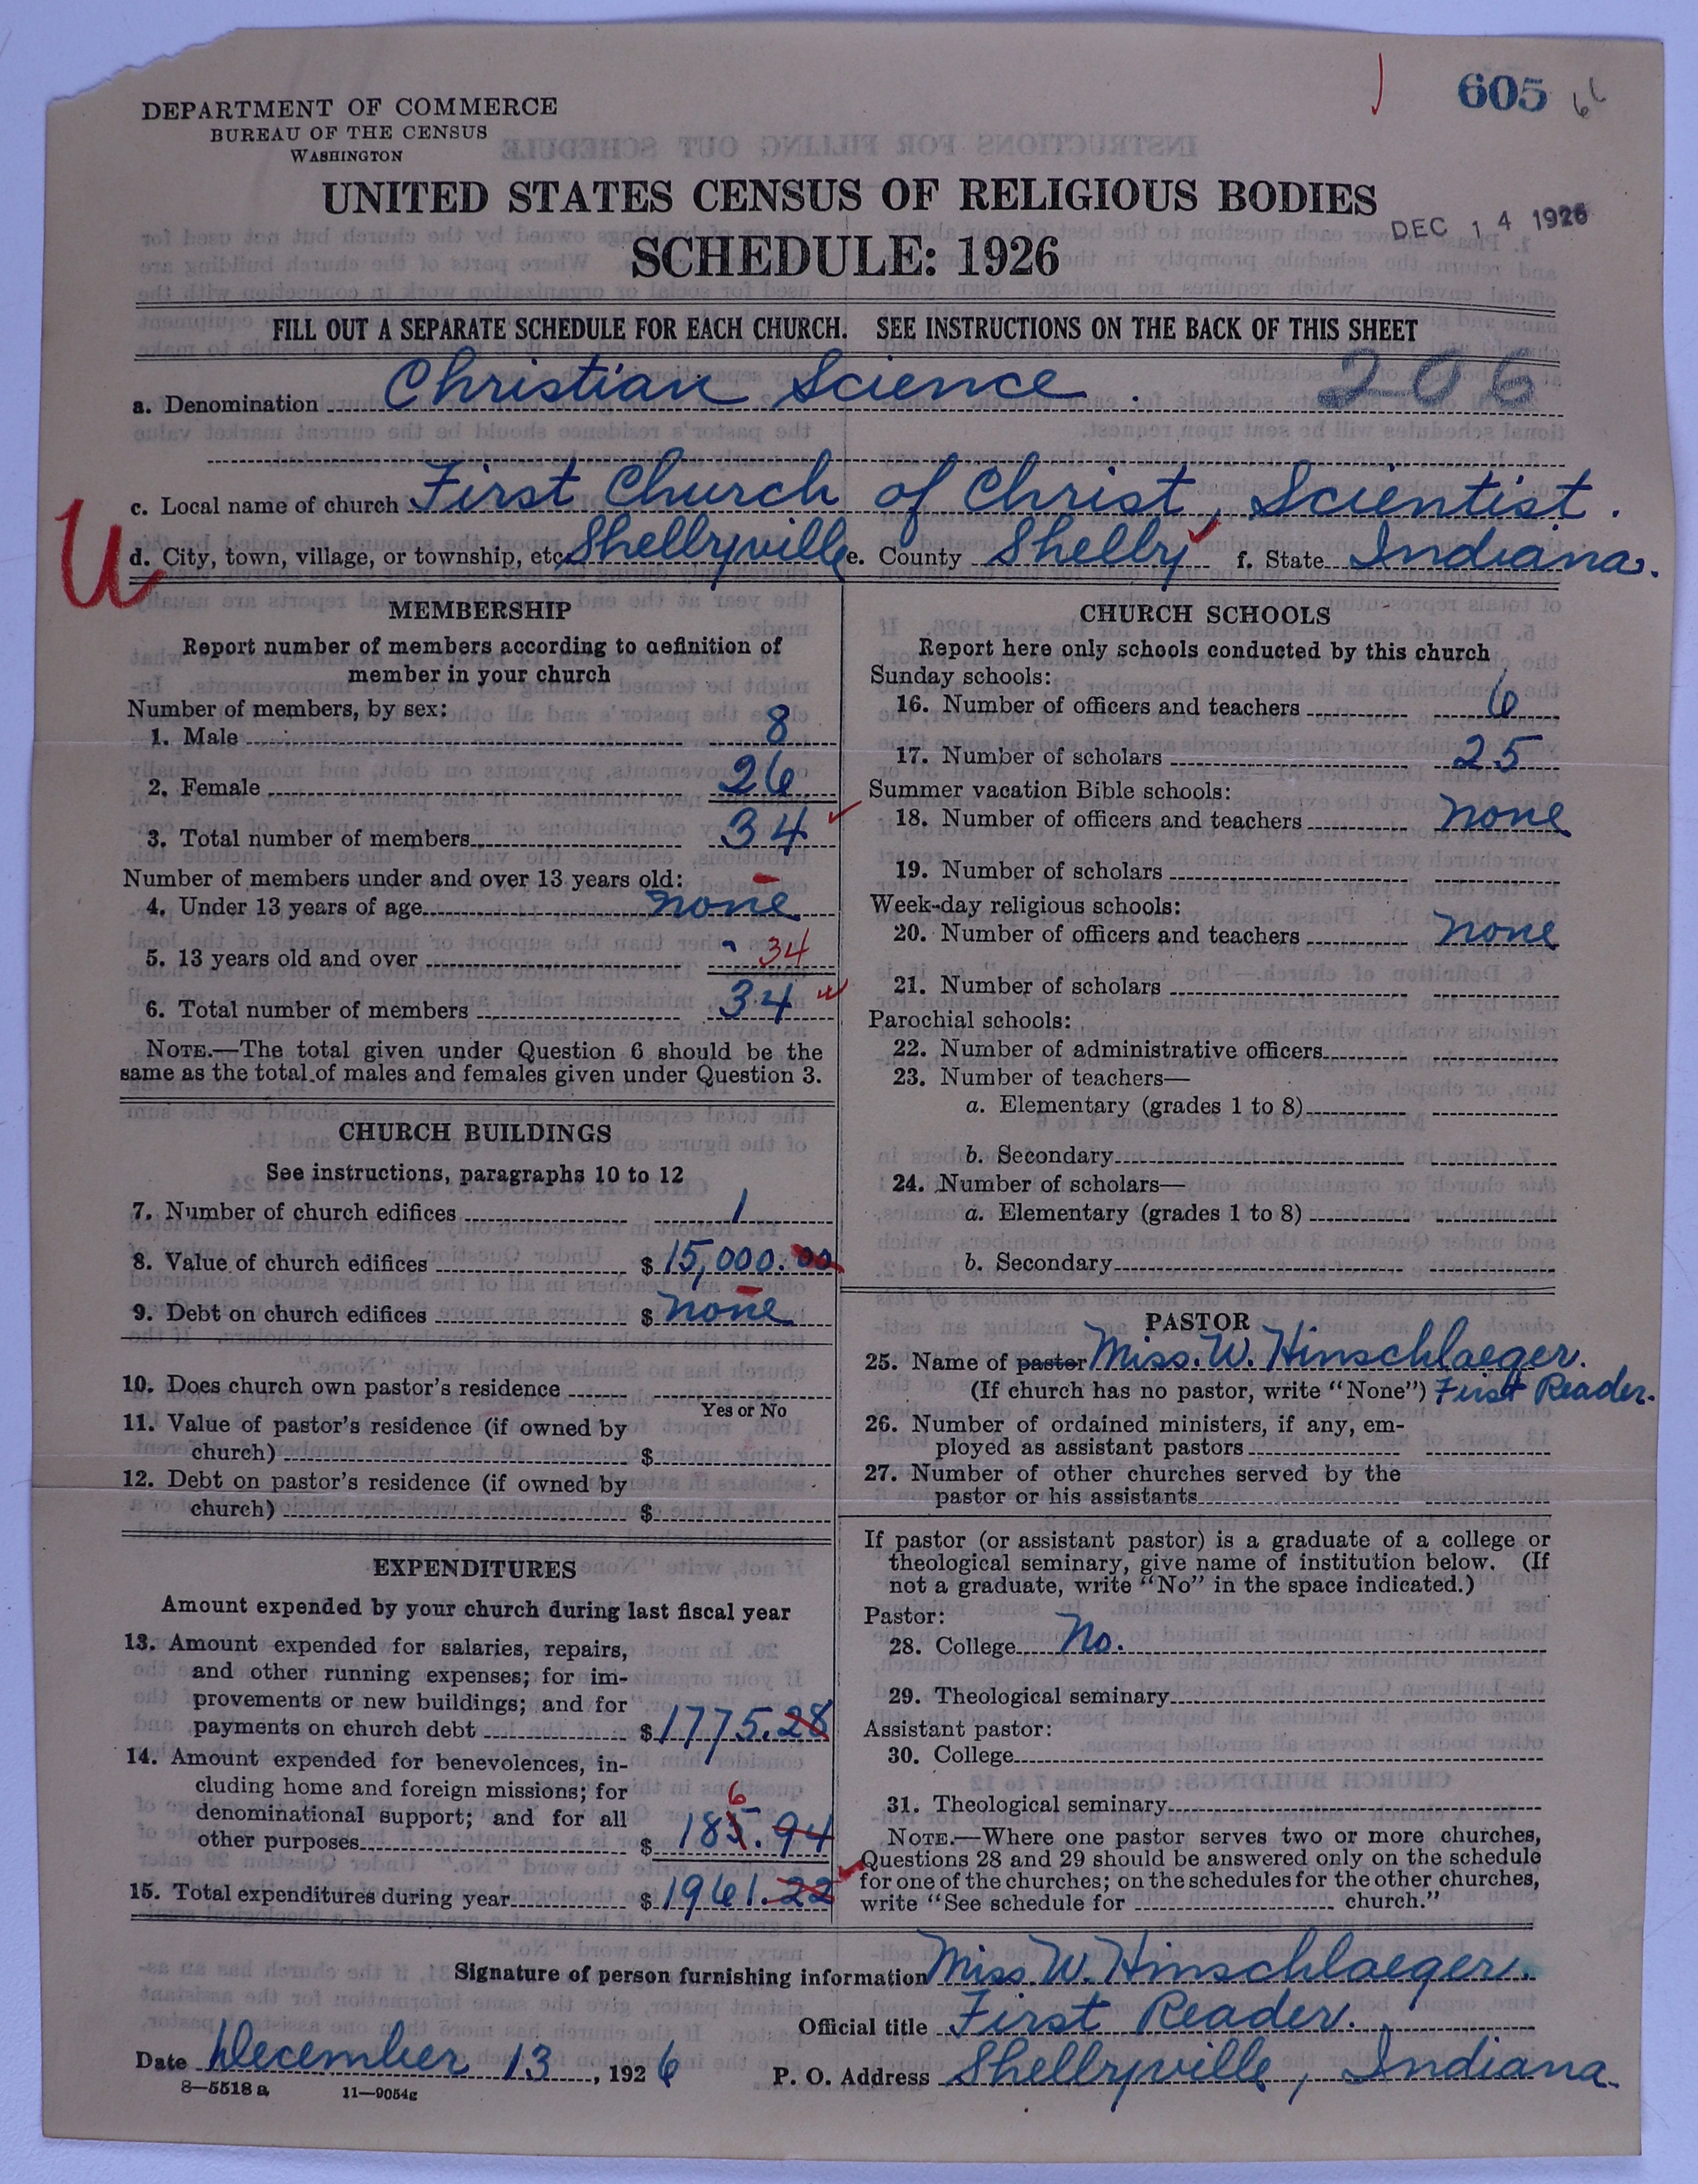 605
DEPARTMENT OF COMMERCE
BUREAU OF THE CENSUS
WASHINGTON
UNITED STATES CENSUS OF RELIGIOUS BODIES
DEC 14 1926
SCHEDULE: 1926
FILL OUT A SEPARATE SCHEDULE FOR EACH CHURCH. SEE INSTRUCTIONS ON THE BACK OF THIS SHEET
a. Denomination Christian Science. 206
c. Local name of church First Church of Christ, Scientist.
U
d. City, town, village, or township, etc. Shelbyville e. County Shelby f. State Indiana.
MEMBERSHIP
Report number of members according to definition of
member in your church
Number of members, by sex:
1. Male 8
2. Female 26
3. Total number of members 34
Number of members under and over 13 years old:
4. Under 13 years of age none
5. 13 years old and over 34
6. Total number of members 34
NOTE.—The total given under Question 6 should be the
same as the total of males and females given under Question 3.
CHURCH BUILDINGS
See instructions, paragraphs 10 to 12
7. Number of church edifices 1
8. Value of church edifices $ 15,000.00
9. Debt on church edifices $ none
10. Does church own pastor's residence
Yes or No
11. Value of pastor's residence (if owned by
church) $
12. Debt on pastor's residence (if owned by
church) $
EXPENDITURES
Amount expended by your church during last fiscal year
13. Amount expended for salaries, repairs,
and other running expenses; for im-
provements or new buildings; and for
payments on church debt $ 1775.28
14. Amount expended for benevolences, in-
cluding home and foreign missions; for
denominational support; and for all
6
other purposes $ 185.94
15. Total expenditures during year $ 1961.22
CHURCH SCHOOLS
Report here only schools conducted by this church
Sunday schools:
16. Number of officers and teachers 6
17. Number of scholars 25
Summer vacation Bible schools:
18. Number of officers and teachers none
19. Number of scholars
Week-day religious schools:
20. Number of officers and teachers none
21. Number of scholars
Parochial schools:
22. Number of administrative officers
23. Number of teachers—
a. Elementary (grades 1 to 8)
b. Secondary
24. Number of scholars—
a. Elementary (grades 1 to 8)
b. Secondary
PASTOR
25. Name of pastor Miss. W. Hinschlaeger.
(If church has no pastor, write "None") First Reader.
26. Number of ordained ministers, if any, em-
ployed as assistant pastors
27. Number of other churches served by the
pastor or his assistants
If pastor (or assistant pastor) is a graduate of a college or
theological seminary, give name of institution below. (If
not a graduate, write "No" in the space indicated.)
Pastor:
28. College No.
29. Theological seminary
Assistant pastor:
30. College
31. Theological seminary
NOTE.—Where one pastor serves two or more churches,
Questions 28 and 29 should be answered only on the schedule
for one of the churches; on the schedules for the other churches,
write "See schedule for church."
Signature of person furnishing information Miss. W. Hinschlaeger.
Official title First Reader.
Date December 13, 1926 P. O. Address Shelbyville, Indiana.
8—5518 a 11—9054g